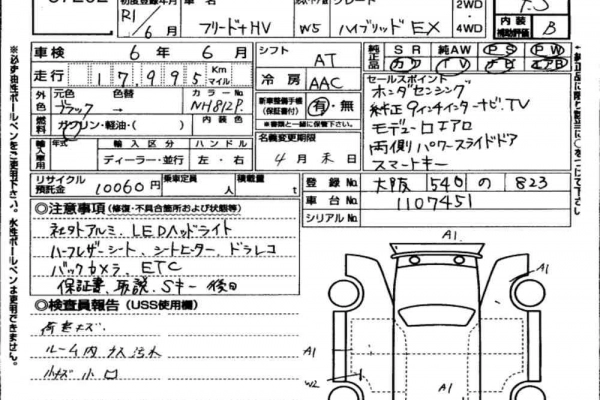 初度登録年月
R1/6
フリード+HV
W5
ハイブリッド EX
グレード
2WD・4WD
内装補助評価
B
車検 6年6月
シフト AT
純正品 SR 純正AW PS PW
カワ TV ナビ エアB
走行 17,995 Km マイル
冷房 AAC
セールスポイント
ホンダセンシング
純正9インチインターナビ、TV
モデューロエアロ
両側パワースライドドア
スマートキー
外色 元色 色替 カラーNo.
ブラック → NH812P.
新車整備手帳(保証書付) 有・無
※書類と一緒に保管して下さい。
燃料 ガソリン・軽油・( ) 内装色
名義変更期限
4月末日
輸入車用 年式 輸入区分 ハンドル
ディーラー・並行 左・右
リサイクル預託金 10060円
乗車定員 人
積載量 t
登録No. 大阪 540 の 823
車台No. 1107451
シリアルNo.
◎注意事項(修復・不具合箇所および状態等)
社外アルミ、LEDヘッドライト
ハーフレザーシート、シートヒーター、ドラレコ
バックカメラ、ETC
保証書、取説、Sキー後日
◎検査員報告(USS使用欄)
荷室キズ
ルーム内 汚れ
A1
A1
A1
W2
A1
※必ず油性ボールペンをご使用下さい。水性ボールペンは使用できません。